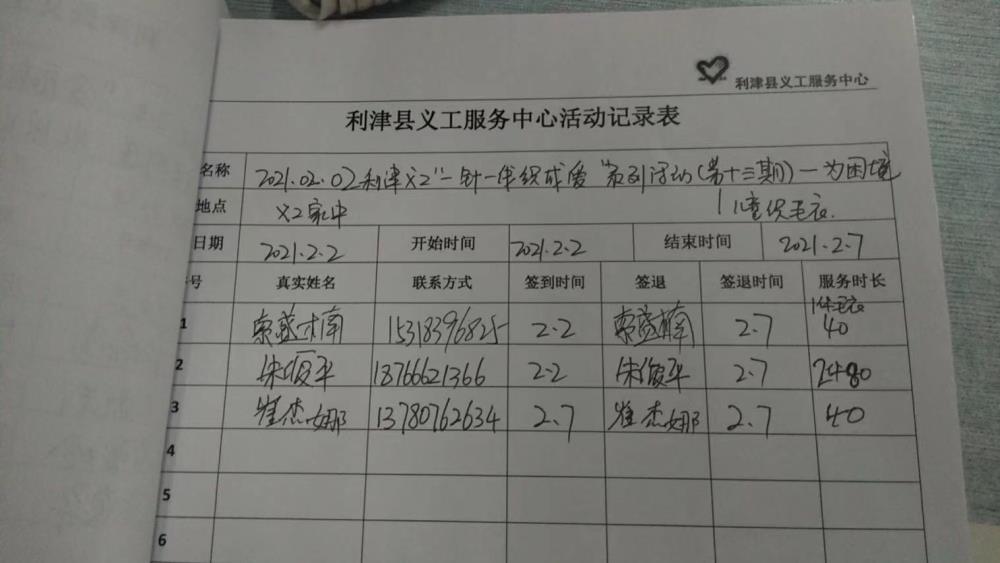 利津县义工服务中心
利津县义工服务中心活动记录表
名称 2021.02.02利津义工"一针一线织成爱"系列活动(第十三期)—为困境
儿童织毛衣.
地点 义工家中
日期 2021.2.2 开始时间 2021.2.2 结束时间 2021.2.7
号 真实姓名 联系方式 签到时间 签退 签退时间 服务时长
1件毛衣
1 15318396825 2.2 2.7 40
2 朱俊平 18766621366 2.2 朱俊平 2.7 80
3 崔杰娜 13780762634 2.7 崔杰娜 2.7 40
4
5
6